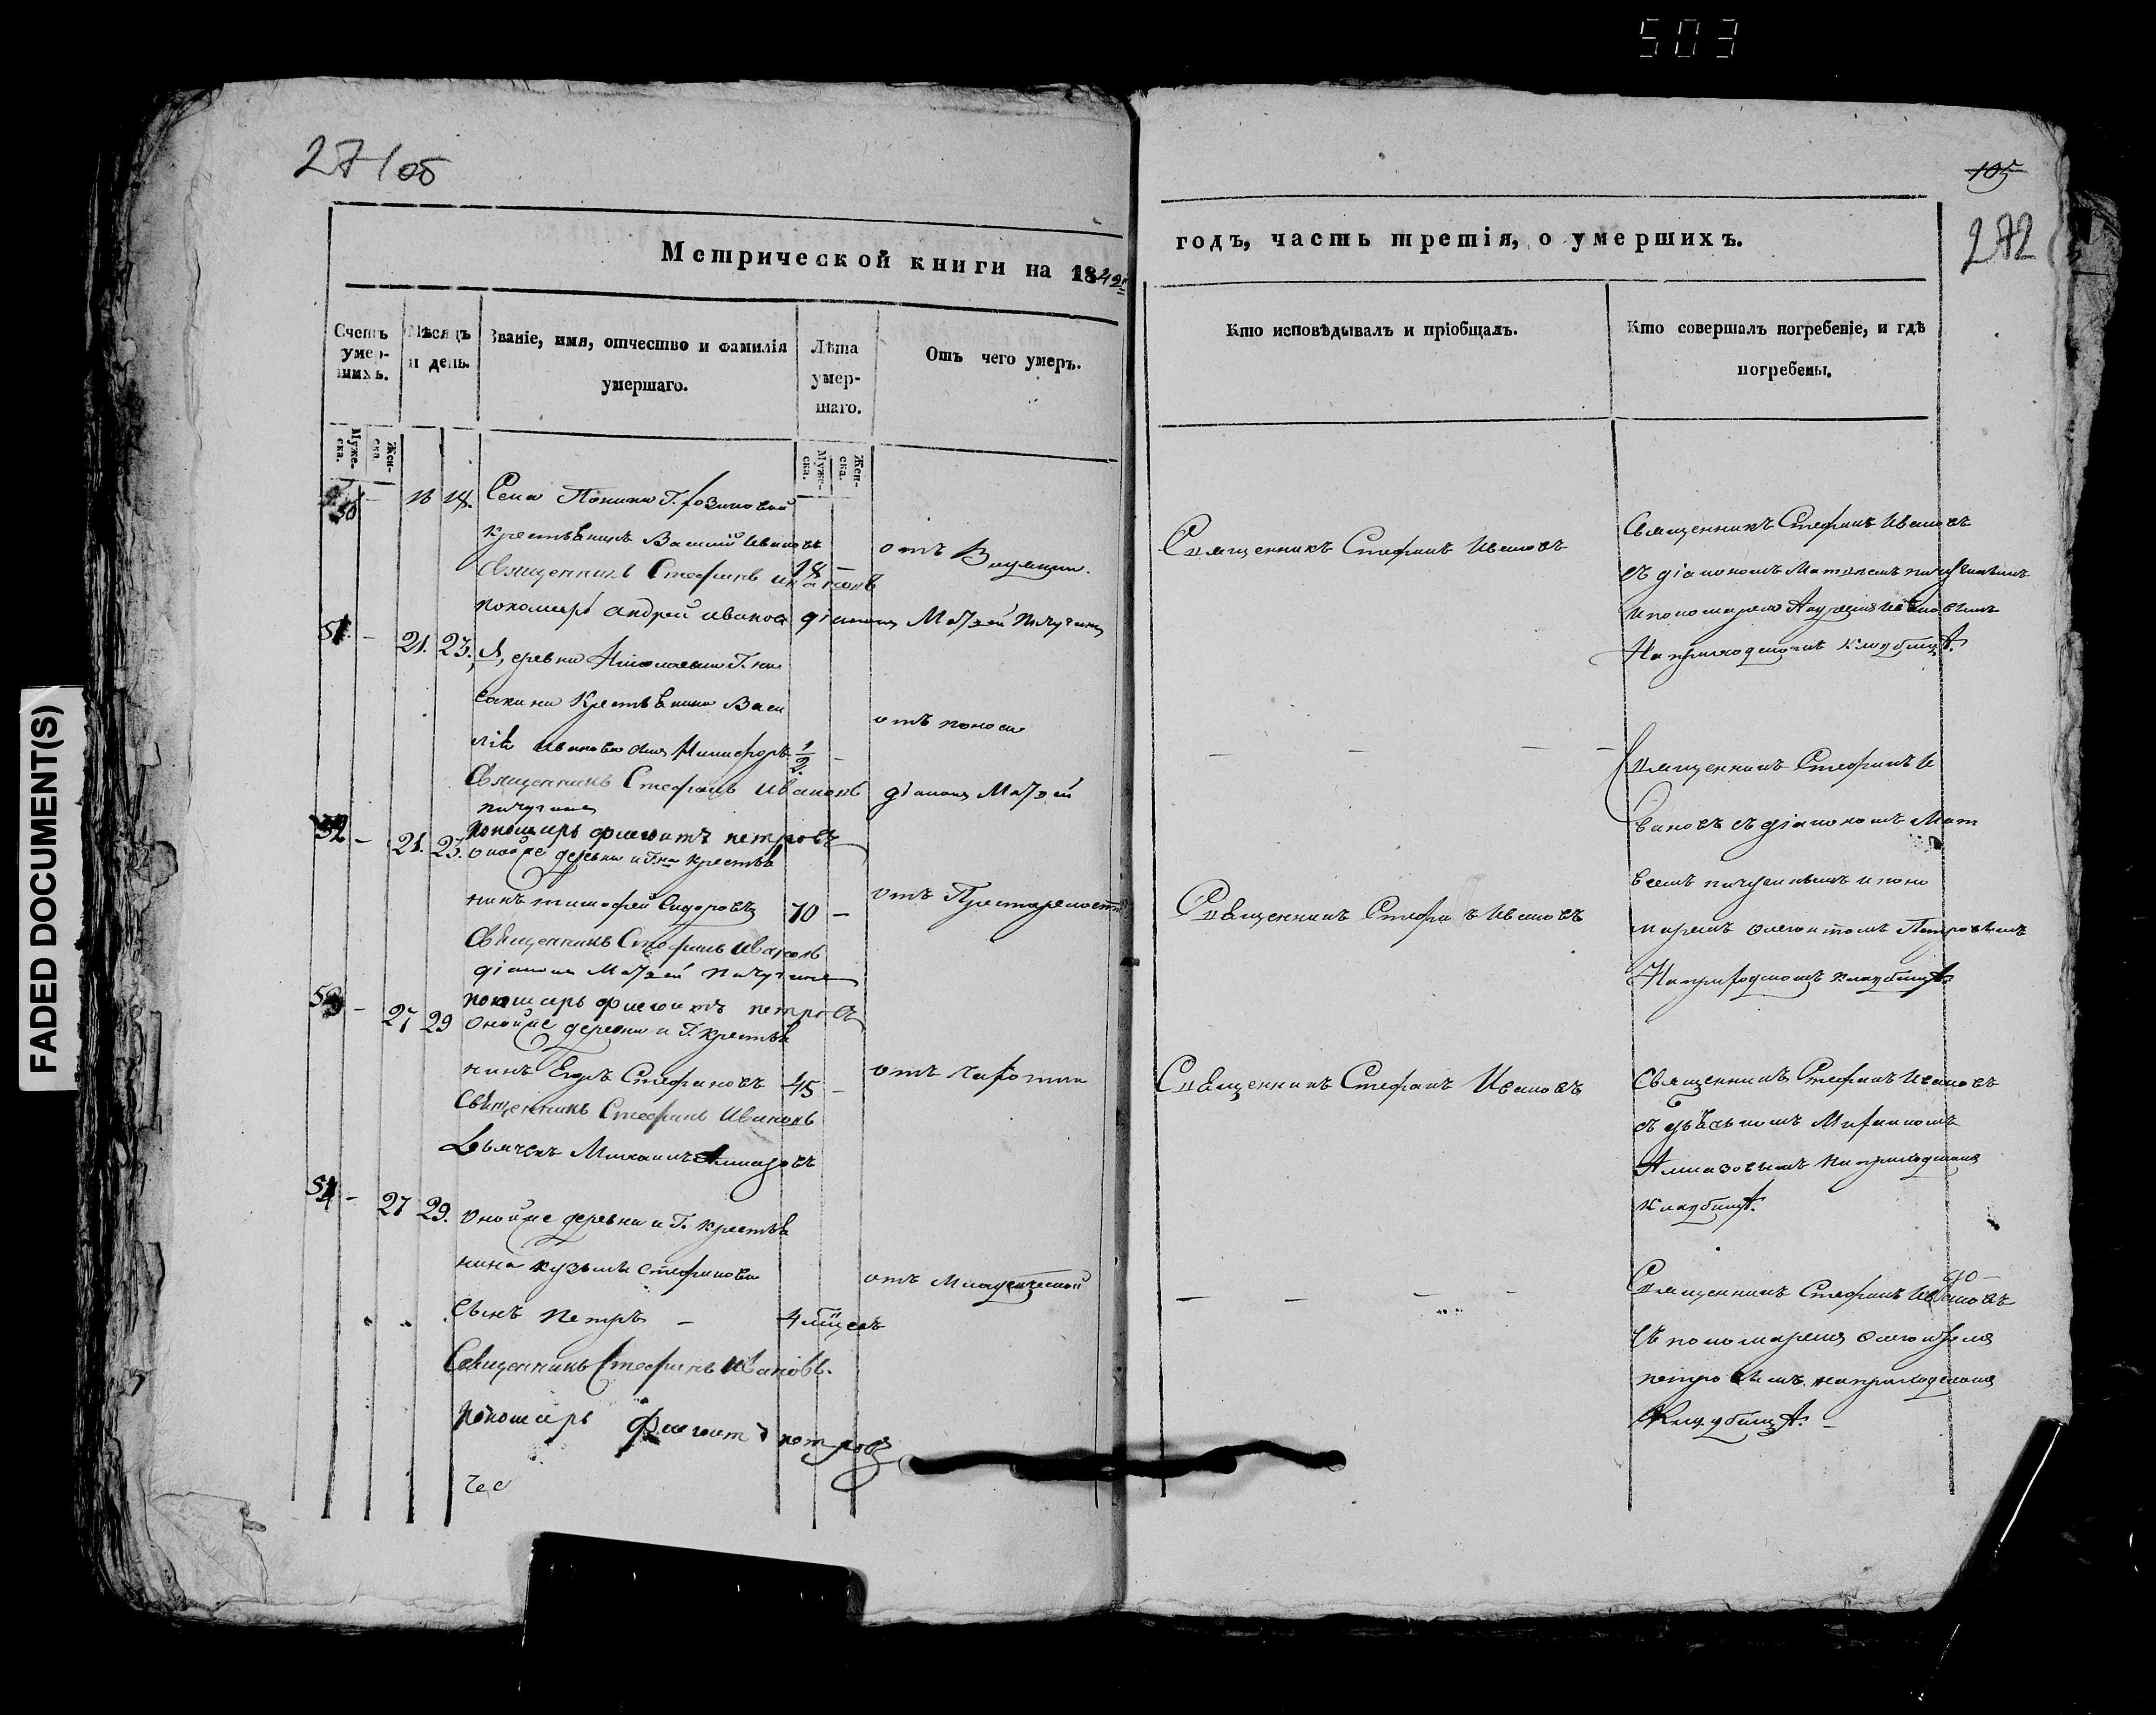 503
FADED DOCUMENT(S)
271об
105
272
Метрической книги на 1842
годъ, часть третія, о умершихъ.
Счетъ умершихъ.
Мѣсяцъ и день.
Званіе, имя, отчество и фамилія умершаго.
Лѣта умершаго.
Отъ чего умеръ.
Кто исповѣдывалъ и пріобщалъ.
Кто совершалъ погребеніе, и гдѣ погребены.
Мужеска.
Женска.
Мужеска.
Женска.
50 - 16 18. Села
крестьянинъ Василій Ивановъ 18 -
отъ
Священникъ Стефанъ Ивановъ
Священникъ Стефанъ Ивановъ
съ діакономъ
и пономаремъ Андреемъ Ивановымъ
На приходскомъ кладбищѣ.
Священникъ Стефанъ Ивановъ
пономарь андрей иванов діаконъ Матѳей Пичугинъ
51. - 21. 23. Деревни
крестьянина Васи
лія Иванова сынъ Никифоръ 1/2. -
отъ поноса
Священникъ Стефанъ И
вановъ съ діакономъ Мат
веемъ пичугинымъ и поно
маремъ Петровымъ
На приходскомъ кладбищѣ.
Священникъ Стефанъ Ивановъ діаконъ Матѳей
пичугинъ
пономарь петровъ
52 - 21. 23. Оной же деревни и Г.на крестья
нинъ тимофей Сидоровъ 70 -
отъ Престарелости
Священникъ Стефанъ Ивановъ
Священникъ Стефанъ Ивановъ
діаконъ Матѳей Пичугинъ
пономарь петровъ
53 - 27 29 Оной же деревни и Г. крестья
нинъ Егоръ Стефановъ 45 -
отъ чахотки
Священникъ Стефанъ Ивановъ
Священникъ Стефанъ Ивановъ
съ дьячькомъ Михаиломъ
Алмазовымъ на приходскомъ
кладбищѣ.
Священникъ Стефанъ Ивановъ
Дьячекъ Михаилъ Алмазовъ
54 - 27 29. Оной же деревни и Г. крестья
нина кузьмы стефанова
сынъ Петръ - 4 мѣсец
отъ младенческой
Священникъ Стефанъ Ивановъ
съ пономаремъ
петровымъ на приходскомъ
Кладбищѣ. -
Священникъ Стефанъ Ивановъ.
пономарь петровъ